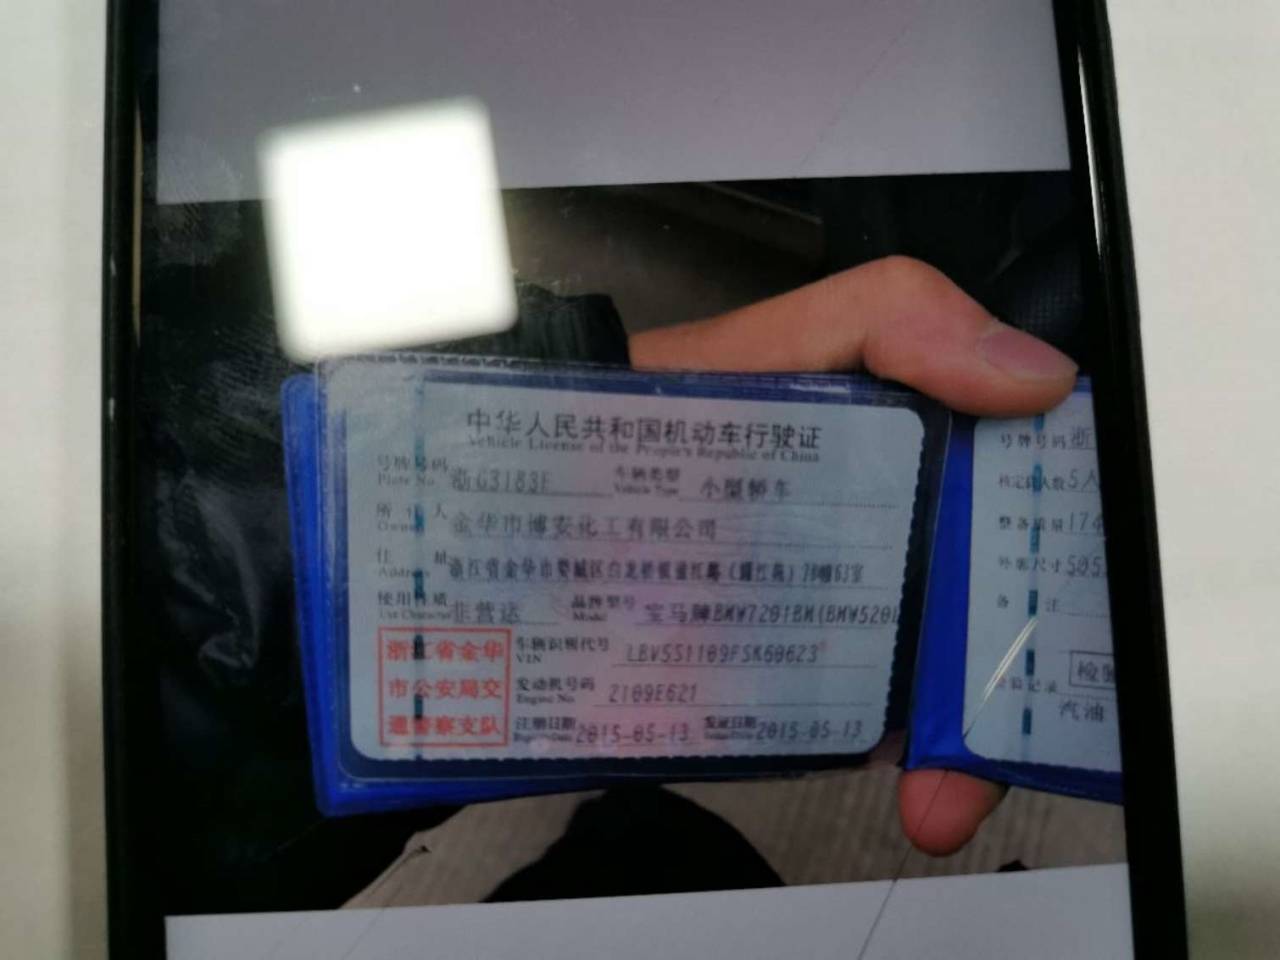 中华人民共和国机动车行驶证
Vehicle License of the People's Republic of China
号牌号码 浙G3183F 车辆类型 小型轿车
Plate No. Vehicle Type
所有人 金华市博安化工有限公司
Owner
住址 浙江省金华市婺城区白龙桥镇
Address
使用性质 非营运 品牌型号 宝马牌BMW7201BM(BMW520L
Use Character Model
浙江省金华
市公安局交
通警察支队
车辆识别代号
VIN
发动机号码 2109E621
Engine No.
注册日期 2015-05-13 发证日期 2015-05-13
Register Date Issue Date
号牌号码 浙
核定载人数 5人
整备质量 174
外廓尺寸 505
备注
检验记录 检验
汽油